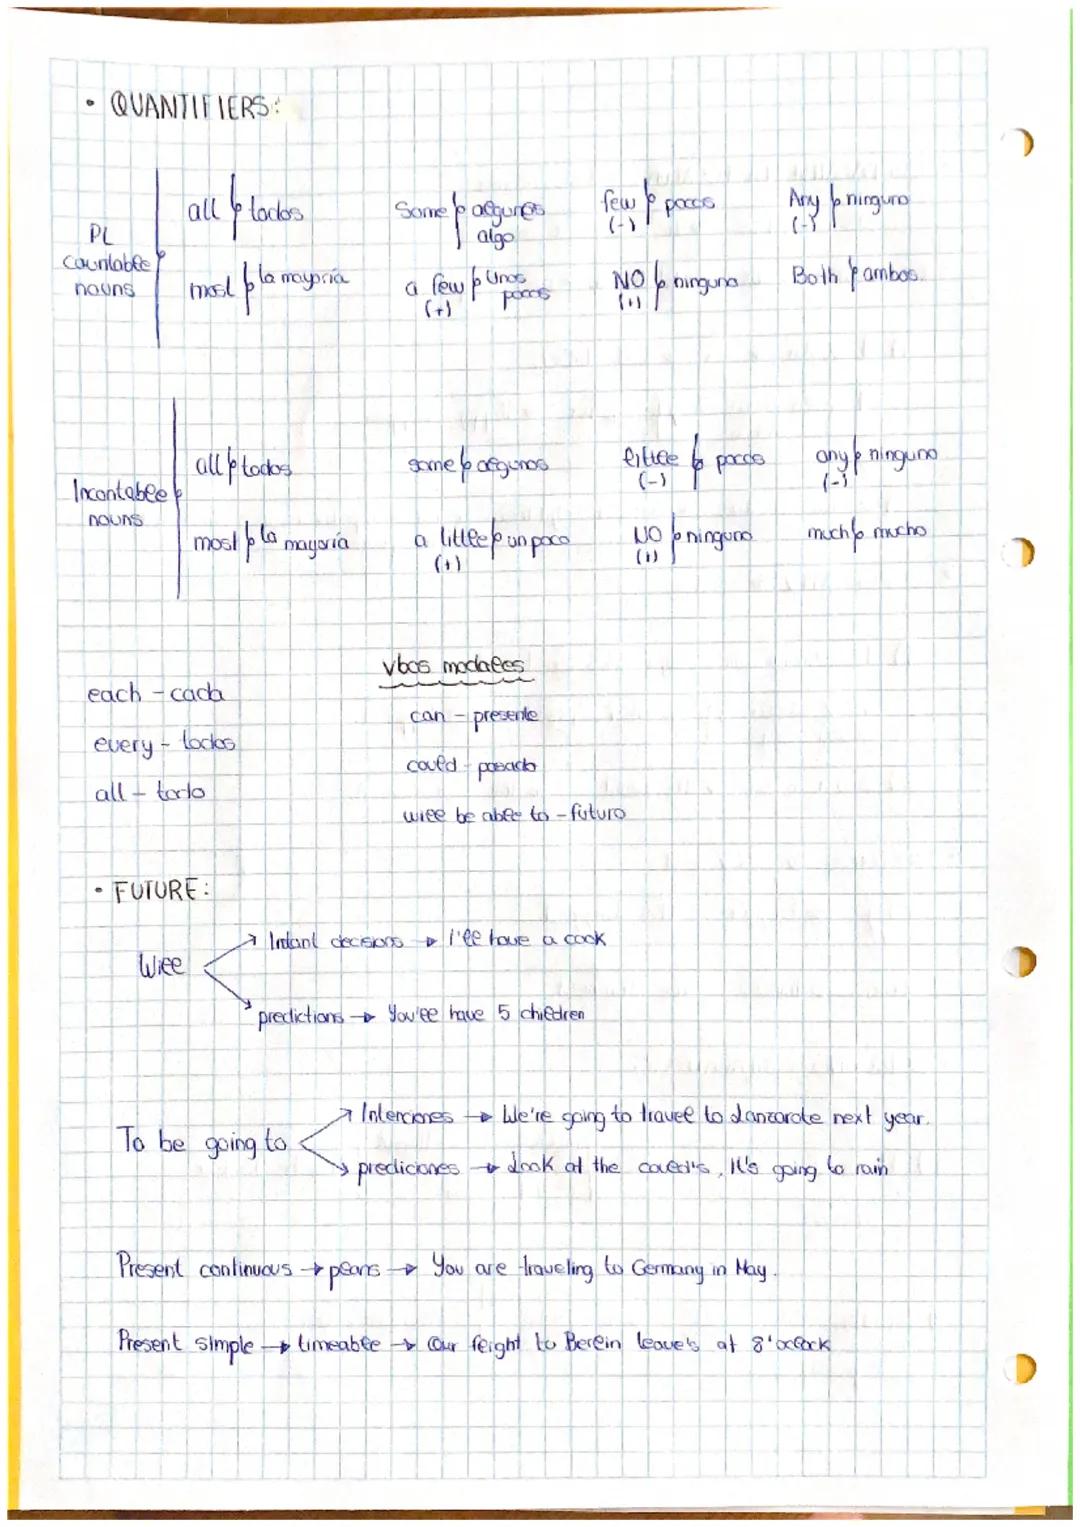 • QUANTIFIERS:
all → todos   Some → algunos   few → pocos   Any → ninguno
algo   (-)   (-)
PL
Countable
nouns
most → la mayoría   a few → unos pocos   NO → ninguno   Both → ambos
(+)   (+)
all → todos   some → algunos   little → pocos   any → ninguno
(-)   (-)
Incontable
nouns
most → la mayoría   a little → un poco   NO → ninguno   much → mucho
(+)   (+)
vbos modales
each - cada
can - presente
every - todos
could - pasado
all - todo
will be able to - futuro
• FUTURE:
Will
Instant decisions → I'll have a cook
predictions → You'll have 5 children
To be going to
Intenciones → We're going to travel to Lanzarote next year.
prediciones → Look at the coud's, It's going to rain
Present continuous → plans → You are traveling to Germany in May.
Present simple → timeable → Our fligth to Berlin leave's at 8'oclock